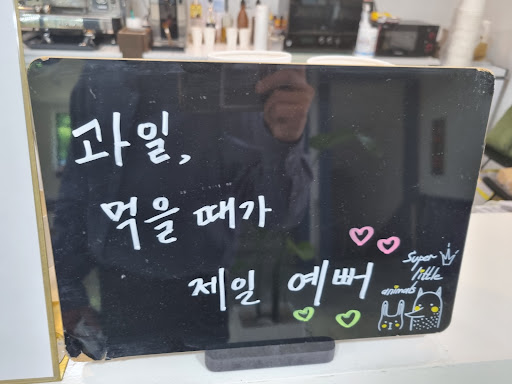 과일,
먹을 때가
제일 예뻐
Super
little
animals